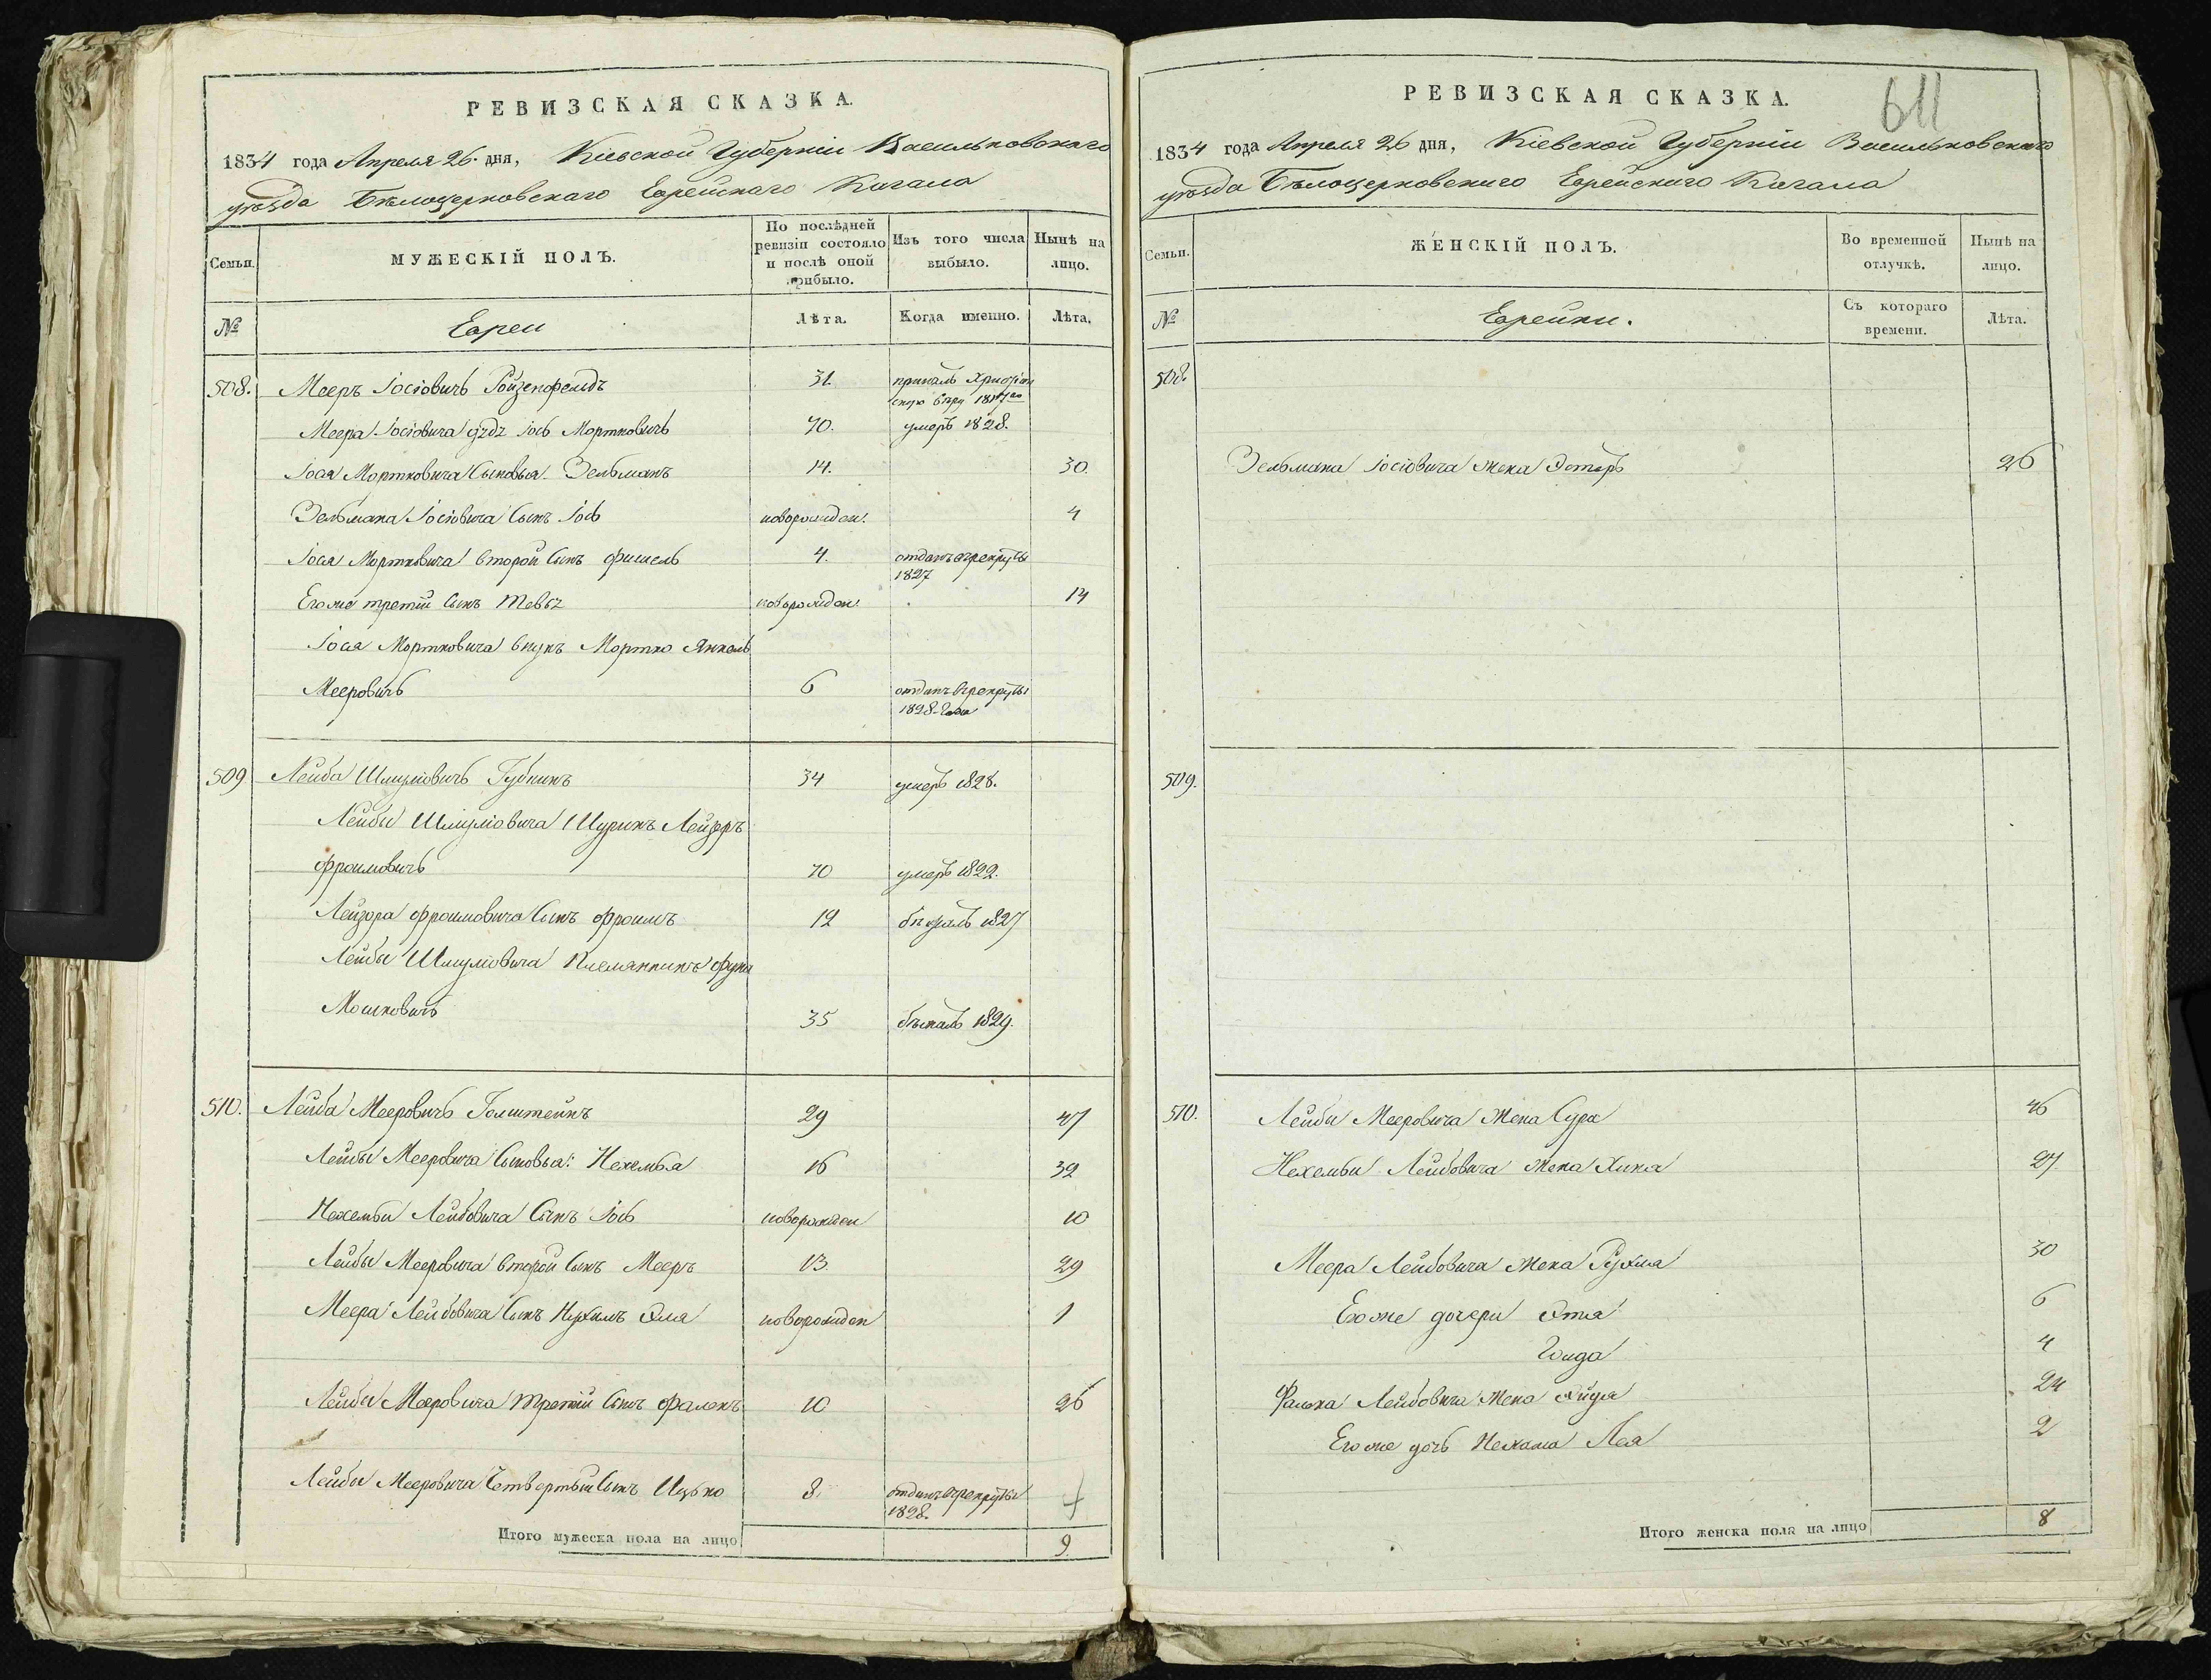 РЕВИЗСКАЯ СКАЗКА.
1834 года Апреля 26 дня, Кіевской Губерніи Васильковскаго
уѣзда Бѣлоцерковскаго Еврейскаго Кагала
Семьи.
МУЖЕСКІЙ ПОЛЪ.
По послѣдней ревизіи состояло и послѣ оной прибыло.
Изъ того числа выбыло.
Нынѣ на лицо.
№
Евреи
Лѣта.
Когда именно.
Лѣта.
508. Мееръ Іосіовичъ Ройзенфельдъ 31. принялъ Христіан
скую вѣру
Меера Іосіовича Іось Мортковичъ 70. умеръ 1828.
Іося Мортковича Сыновья Зельманъ 14. 30.
Зельмана Іосіовича Сынъ Іось новорожден. 4
Іося Мортковича второй Сынъ Фишель 4. отданъ врекруты
1827
Его же третій Сынъ Тевьъ новорожден. 14
Іося Мортковича внукъ Мортко Янкель
Мееровичъ 6 отданъ врекруты
1828 года
509 Лейба Шмуліовичъ Губникъ 34 умеръ 1828.
Лейбы Шмуліовича Шуринъ Лейзеръ
Фроимовичъ 70 умеръ 1822.
Лейзора Фроимовича Сынъ Фроимъ 12 бѣжалъ 1827
Лейбы Шмуліовича Племянникъ
Мошковичъ 35 бѣжалъ 1829.
510. Лейба Мееровичъ Голштейнъ 29 47
Лейбы Мееровича Сыновья: Нехемья 16 32
Нехемьи Лейбовича Сынъ Іось новорожден 10
Лейбы Мееровича второй Сынъ Мееръ 13 29
Меера Лейбовича Сынъ Нухимъ Эля новорожден 1
Лейбы Мееровича третій Сынъ Фалекъ 10 26
Лейбы Мееровича Четвертый Сынъ Ицько 8. отданъ врекруты
1828.
Итого мужеска пола на лицо 9.
611
РЕВИЗСКАЯ СКАЗКА.
1834 года Апреля 26 дня, Кіевской Губерніи Васильковскаго
уѣзда Бѣлоцерковскаго Еврейскаго Кагала
Семьи.
ЖЕНСКІЙ ПОЛЪ.
Во временной отлучкѣ.
Нынѣ на лицо.
№
Еврейки.
Съ котораго времени.
Лѣта.
508.
Зельмана Іосіовича жена Эстеръ 26
509.
510. Лейбы Мееровича жена Сура 46
Нехемьи Лейбовича жена Хана 27
Меера Лейбовича жена Рухля 30
Его же дочери Этля 6
4
Фалека Лейбовича жена 24
Его же дочь Нехама Лея 2
Итого женска пола на лицо 8